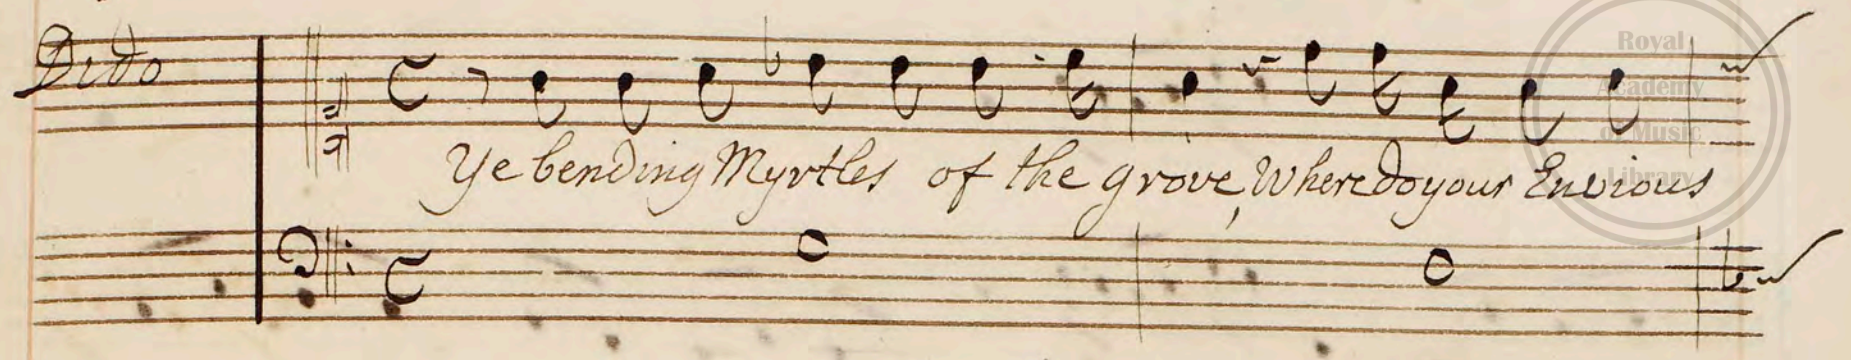 Dido
Ye bending Myrtles of the grove, Where do your Envious
Royal
Academy
of Music
Library